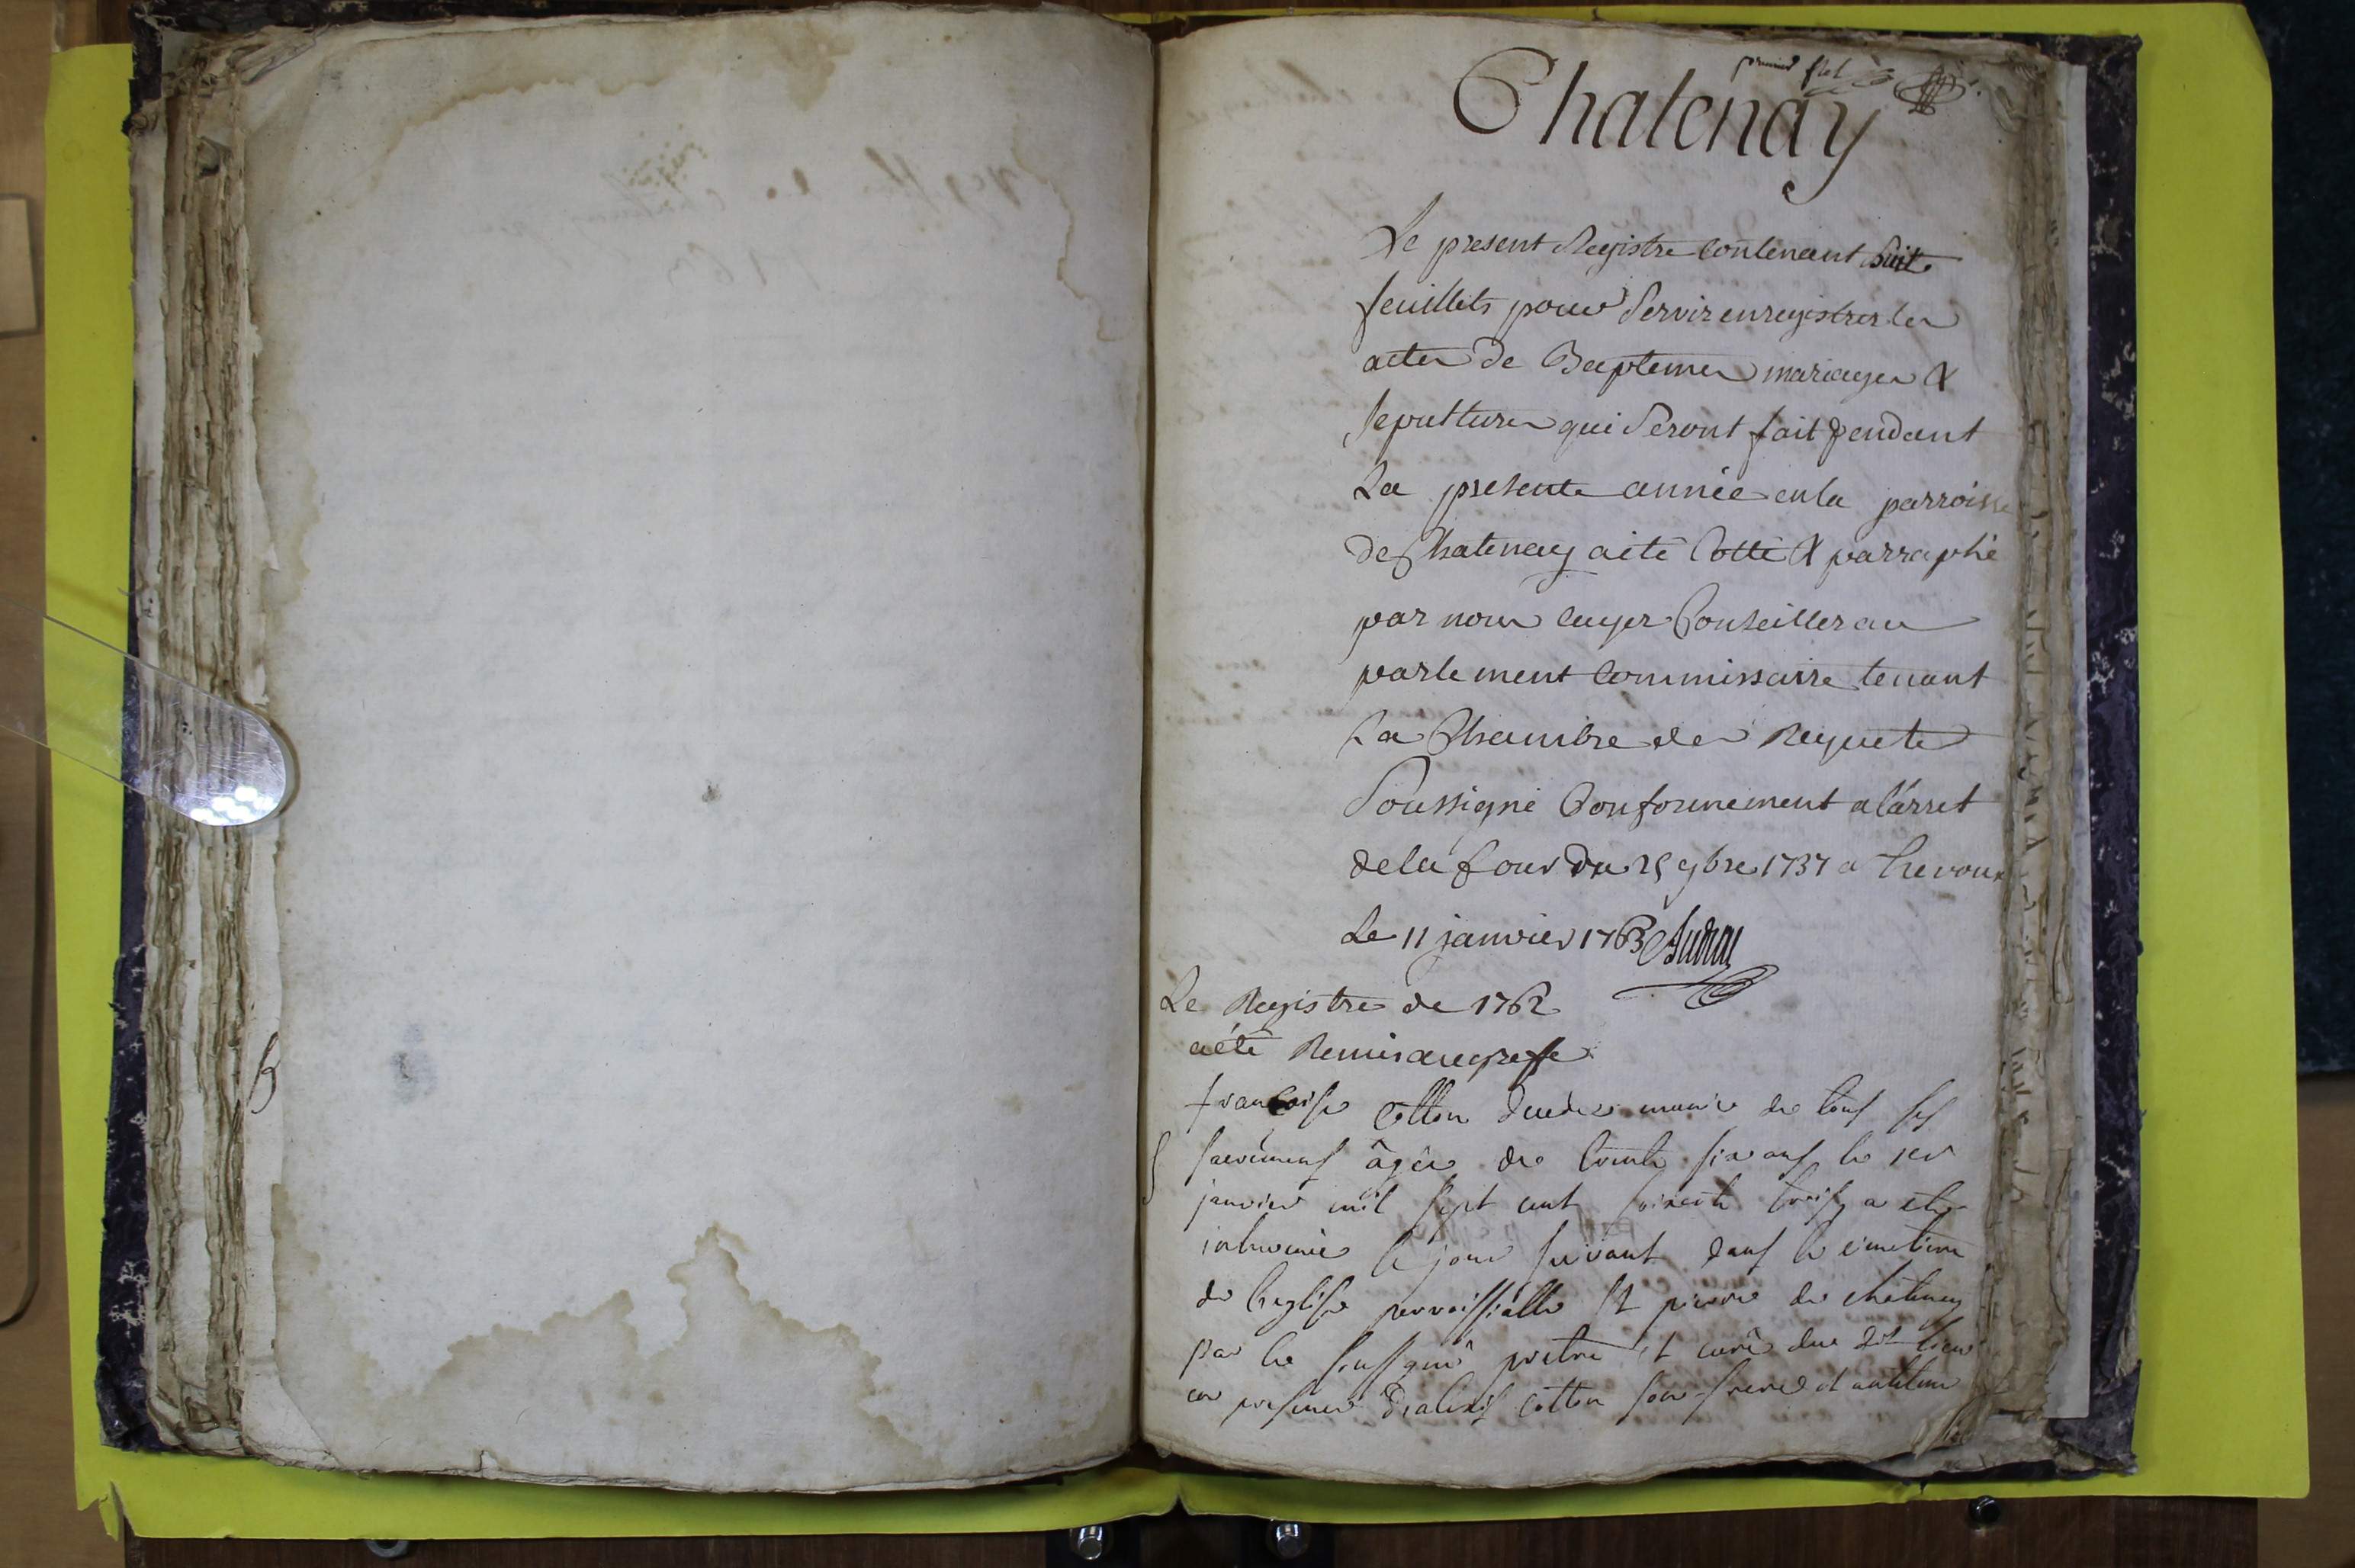 premier flet
Chatenay
Le present Registre contenant huit
feuillets pour Servir enregistrer les
actes de Baptemes mariages &
sepultures qui Seront fait pendant
La presente année en la parroisse
de Chatenay a été Cotté & parraphé
par nous Conseiller au
parlement Commissaire tenant
La Chambre des Requete
Soussigné Conformement a l'arret
de la Cour du 25 9bre 1737 a Trevoux
Le 11 janvier 1763 Audra
Le Registre de 1762
a été Remis au greffe
francoise Cotton munie de tous ses
sacrements âgée de trente six ans le 1er
janvier mil sept cent soixante trois a ete
inhumée le jour suivant dans le cimetiere
de l'eglise parroissialle St pierre de chatenay
par le soussigné pretre et curé du dit lieu
en presence d'alexis Cotton son frere et